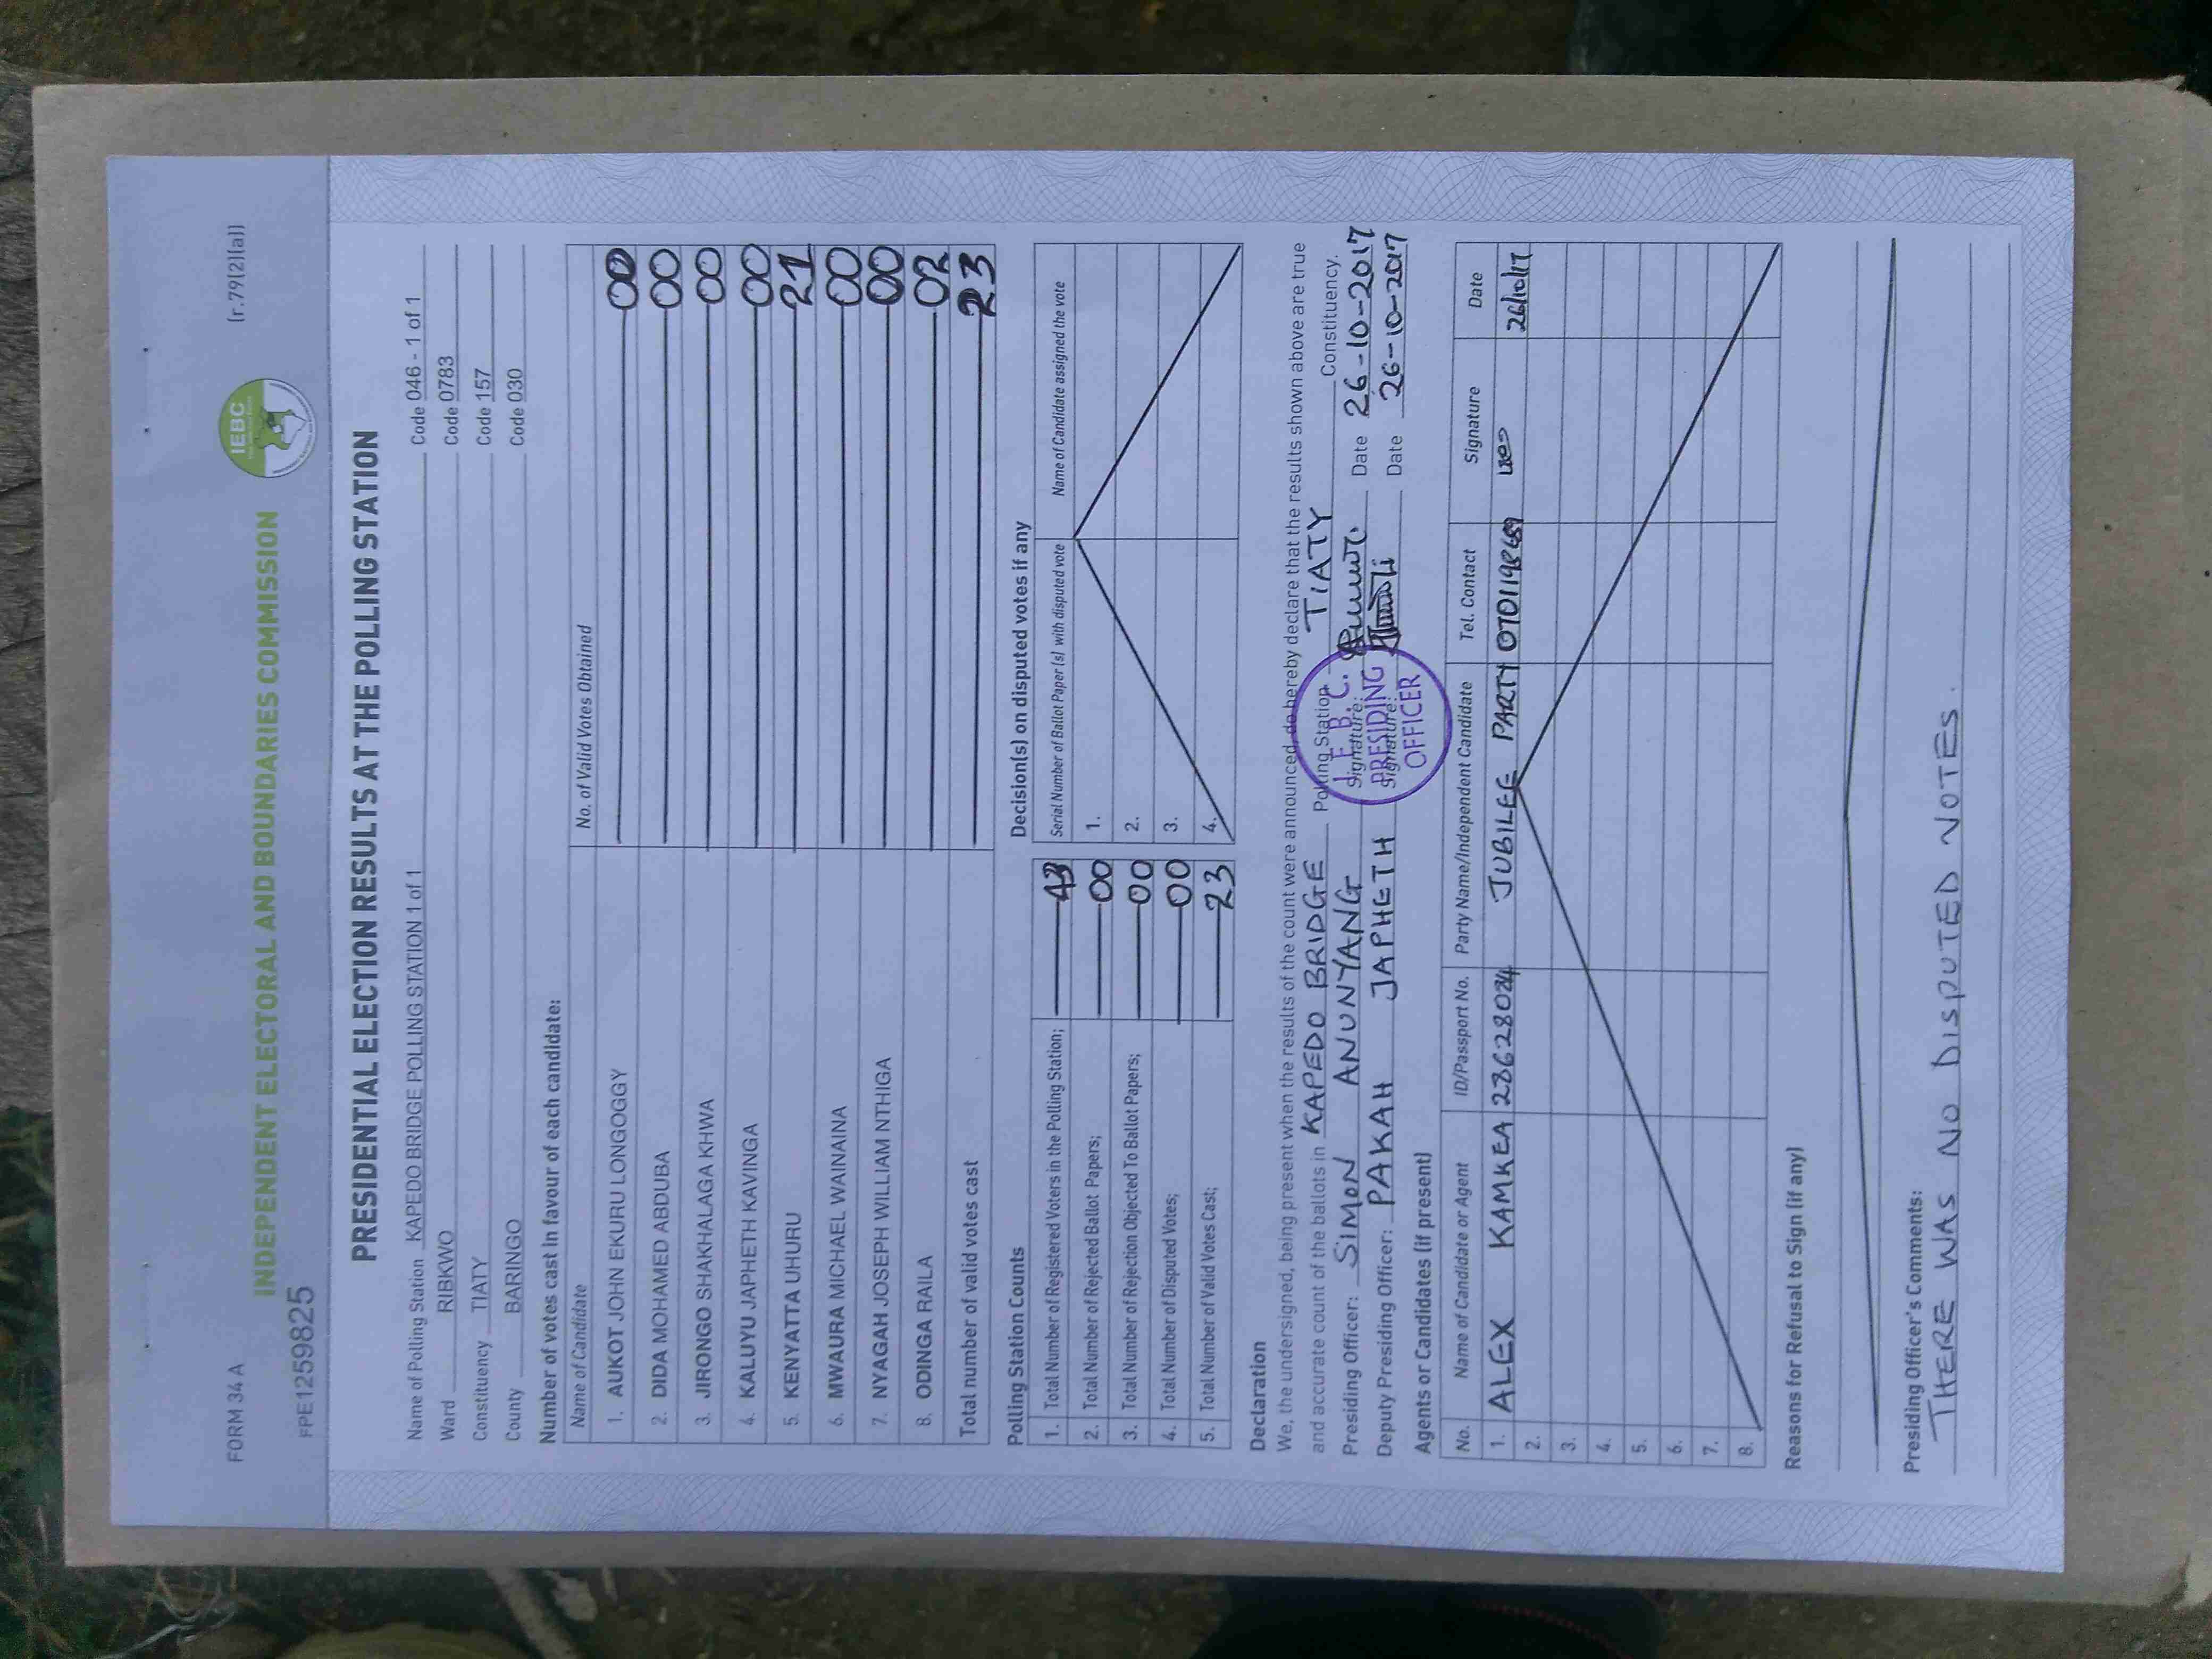 FORM 34 A
(r.79(2)(a))
IEBC
INDEPENDENT ELECTORAL AND BOUNDARIES COMMISSION
FPE1259825
PRESIDENTIAL ELECTION RESULTS AT THE POLLING STATION
Name of Polling Station KAPEDO BRIDGE POLLING STATION 1 of 1 Code 046 - 1 of 1
Ward RIBKWO Code 0783
Constituency TIATY Code 157
County BARINGO Code 030
Number of votes cast in favour of each candidate:
Name of Candidate No. of Valid Votes Obtained
1. AUKOT JOHN EKURU LONGOGGY 00
2. DIDA MOHAMED ABDUBA 00
3. JIRONGO SHAKHALAGA KHWA 00
4. KALUYU JAPHETH KAVINGA 00
5. KENYATTA UHURU 21
6. MWAURA MICHAEL WAINAINA 00
7. NYAGAH JOSEPH WILLIAM NTHIGA 00
8. ODINGA RAILA 02
Total number of valid votes cast 23
Polling Station Counts
1. Total Number of Registered Voters in the Polling Station;
2. Total Number of Rejected Ballot Papers; 00
3. Total Number of Rejection Objected To Ballot Papers; 00
4. Total Number of Disputed Votes; 00
5. Total Number of Valid Votes Cast; 23
Decision(s) on disputed votes if any
Serial Number of Ballot Paper (s) with disputed vote Name of Candidate assigned the vote
1.
2.
3.
4.
Declaration
We, the undersigned, being present when the results of the count were announced, do hereby declare that the results shown above are true
and accurate count of the ballots in KAPEDO BRIDGE Polling Station TIATY Constituency.
Presiding Officer: SIMON ANUNYANG Signature: Date 26-10-2017
Deputy Presiding Officer: PAKAH JAPHETH Signature: Date 26-10-2017
I.E.B.C.
PRESIDING
OFFICER
Agents or Candidates (if present)
No. Name of Candidate or Agent ID/Passport No. Party Name/Independent Candidate Tel. Contact Signature Date
1. ALEX KAMKEA JUBILEE PARTY 26/10/17
2.
3.
4.
5.
6.
7.
8.
Reasons for Refusal to Sign (if any)
Presiding Officer's Comments:
THERE WAS NO DISPUTED VOTES.